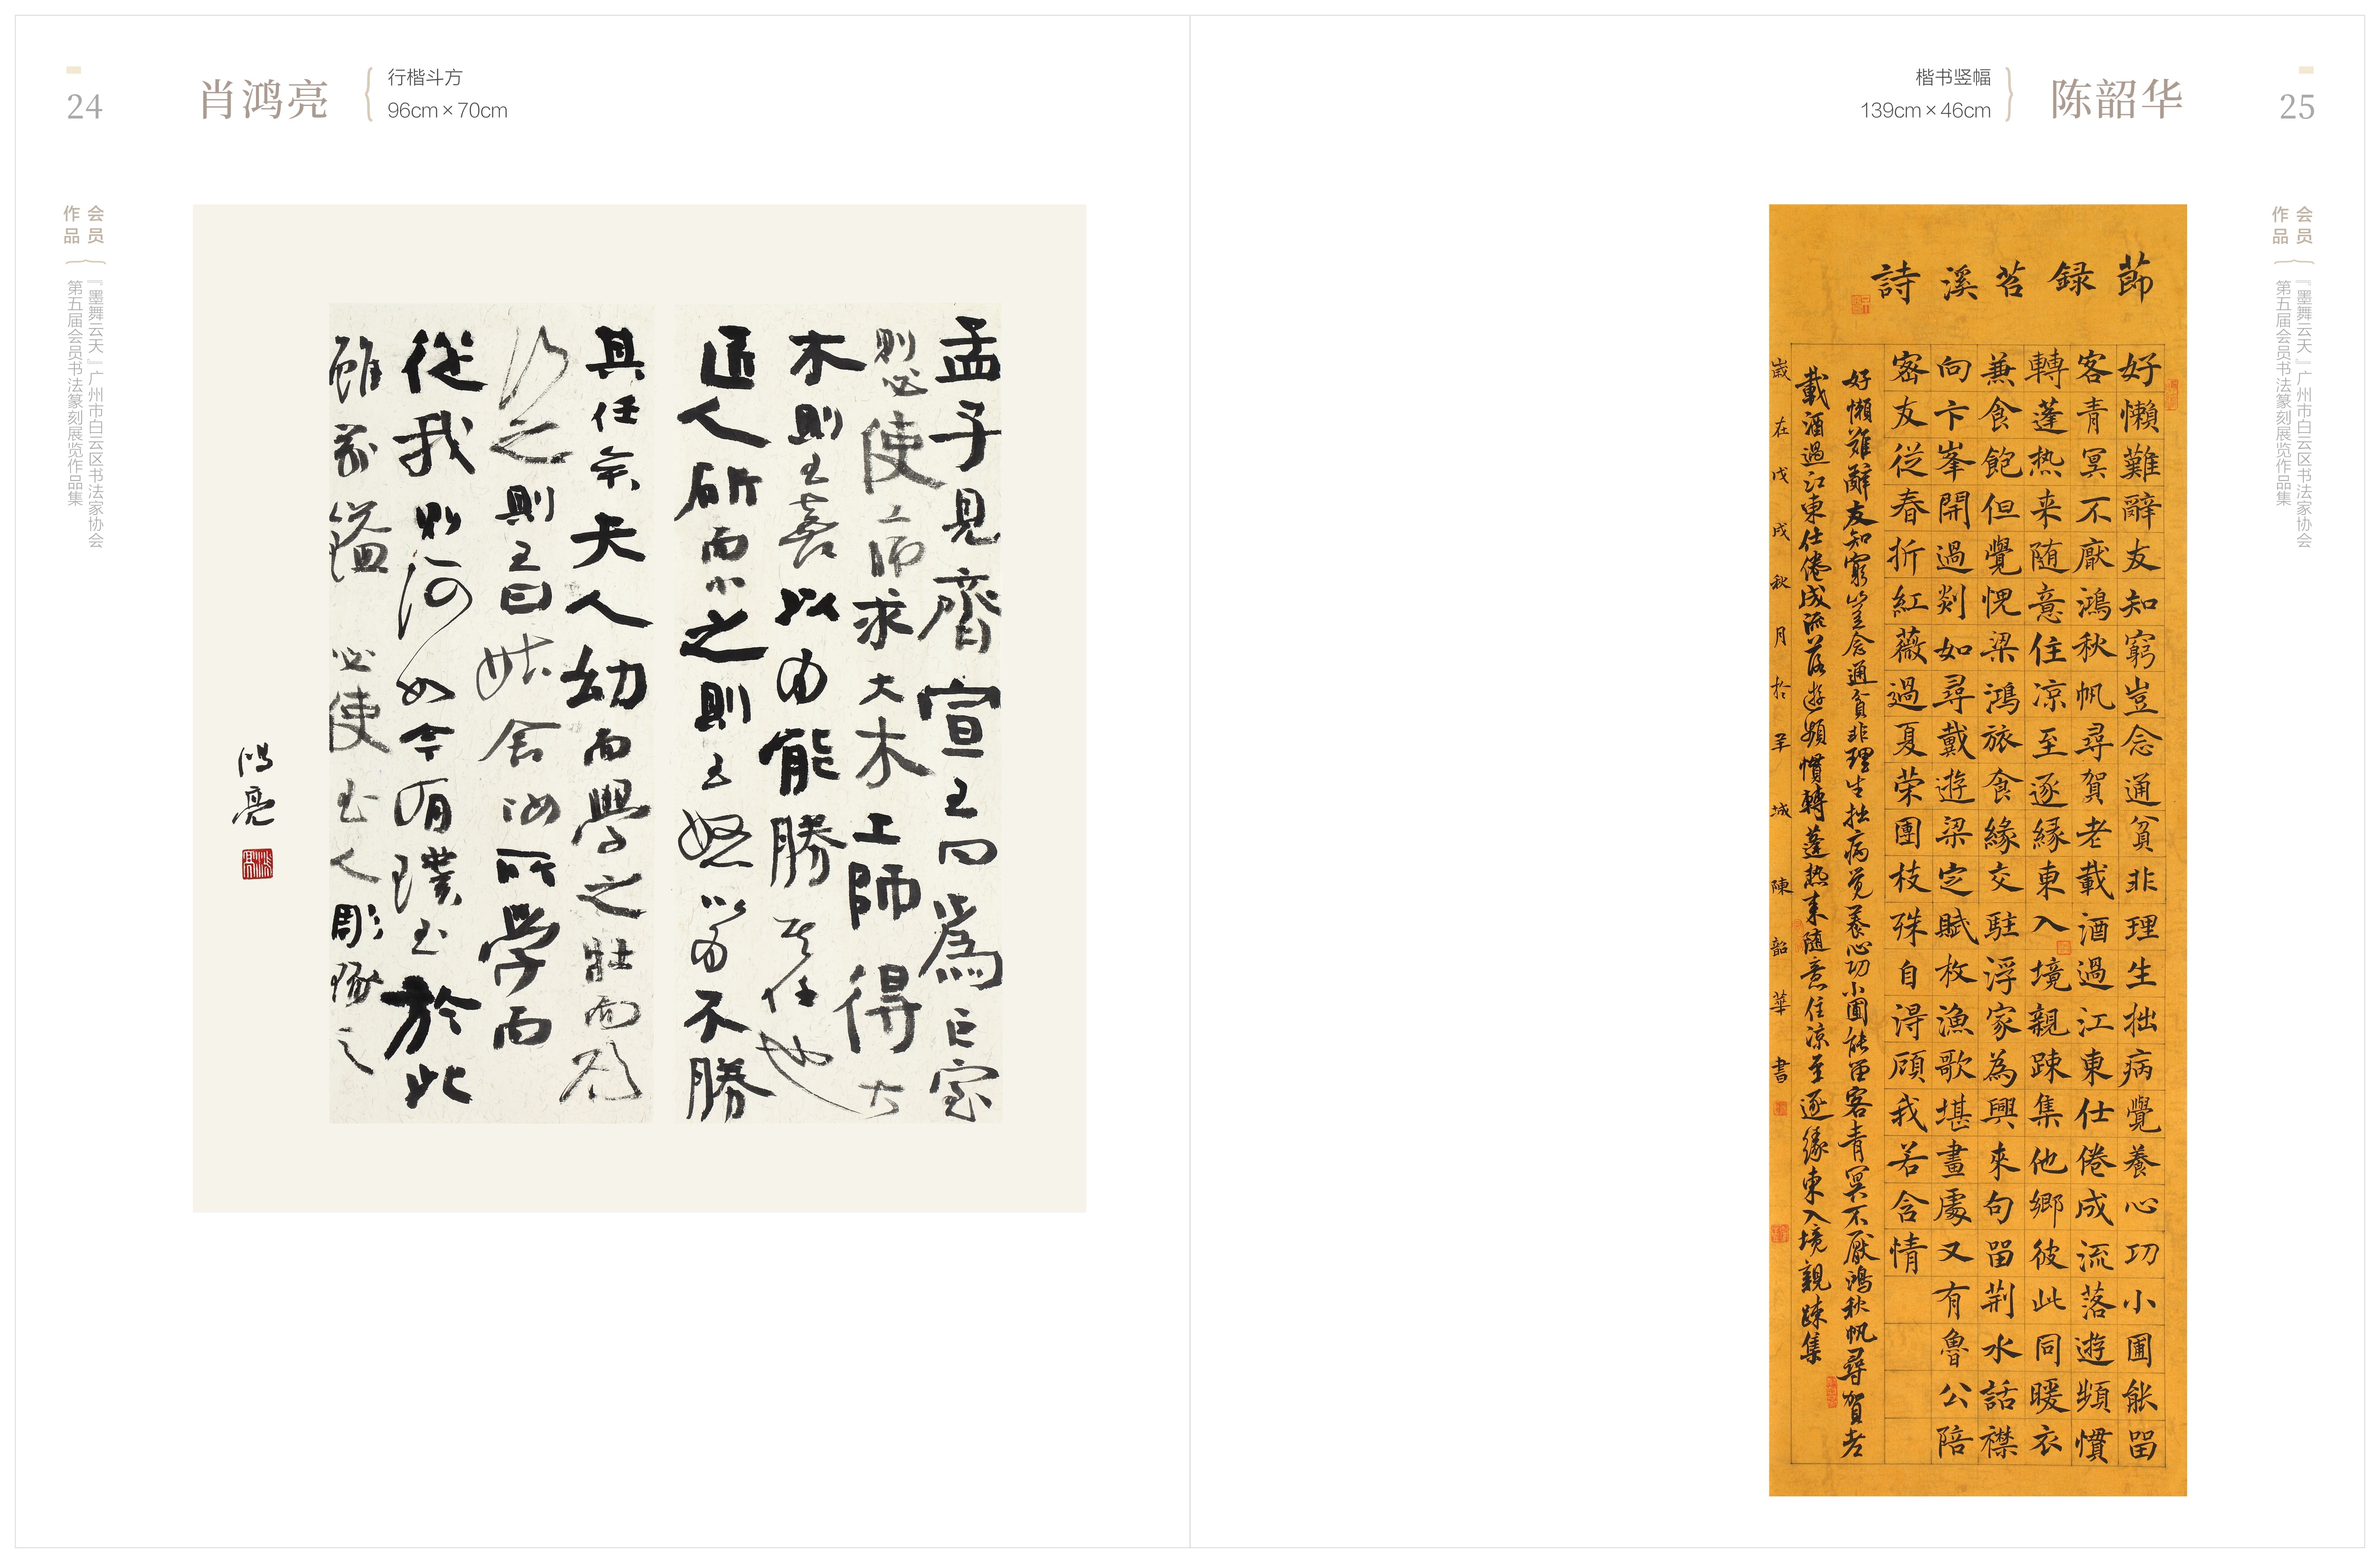 24
肖鸿亮
行楷斗方
96cm×70cm
会员
作品
『墨舞云天』广州市白云区书法家协会
第五届会员书法篆刻展览作品集
孟子見齊宣王曰爲巨室
則必使工師求大木工師得大
木則王喜以為能勝其任也
匠人斫而小之則王怒以為不勝
其任矣夫人幼而學之壯而欲
行之則王曰姑舍汝所學而
從我則何如今有璞玉於此
雖萬鎰必使玉人彫琢之
鸿亮
楷书竖幅
139cm×46cm
陈韶华
25
会员
作品
『墨舞云天』广州市白云区书法家协会
第五届会员书法篆刻展览作品集
節録苕溪詩
好懶難辭友知窮豈念通貧非理生拙病覺養心功小圃能留
客青冥不厭鴻秋帆尋賀老載酒過江東仕倦成流落遊頻慣
轉蓬热来随意住凉至逐縁東入境親踈集他鄉彼此同暖衣
兼食飽但覺愧梁鴻旅食緣交駐浮家為興來句留荆水話襟
向卞峯開過剡如尋戴遊梁定賦枚漁歌堪畫處又有魯公陪
密友従春折紅薇過夏荣團枝殊自得顧我若含情
好懶難辭友知窮豈念通貧非理生拙病觉養心功小圃能留客青冥不厭鴻秋帆尋賀老
載酒過江東仕倦成流落遊頻慣轉蓬熱来随意住凉至逐緣東入境親踈集
歲在戊戌秋月於羊城陳韶華書